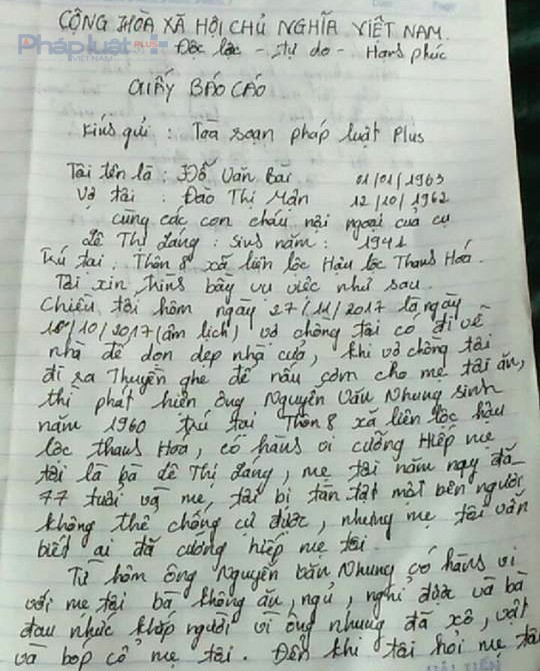 CỘNG HÒA XÃ HỘI CHỦ NGHĨA VIỆT NAM.
Pháp luật PLUS
VIỆT NAM
Độc lập - Tự do - Hạnh phúc
GIẤY BÁO CÁO
Kính gửi : Tòa soạn pháp luật Plus
Tôi tên là : Đỗ Văn Bãi 01/01/1963
Vợ tôi : Đào Thị Mận 12/10/1962
cùng các con cháu nội ngoại của cụ
Lê Thị Láng : sinh năm : 1941
Trú tại . Thôn 8 xã liên lộc Hậu lộc Thanh Hoá.
Tôi xin trình bầy vụ việc như sau
Chiều tối hôm ngày 27/11/2017 là ngày
10/10/2017 (âm lịch) vợ chồng tôi có đi về
nhà để dọn dẹp nhà cửa, khi vợ chồng tôi
đi ra Thuyền ghe để nấu cơm cho mẹ tôi ăn,
thì phát hiện ông Nguyễn Văn Nhung sinh
năm 1960 trú tại Thôn 8 xã liên lộc hậu
lộc thanh Hoá, có hành vi cưỡng Hiếp mẹ
tôi là bà Lê Thị Láng, mẹ tôi năm nay đã
77 tuổi và mẹ tôi bị tàn tật một bên người
không thể chống cự được, nhưng mẹ tôi vẫn
biết ai đã cưỡng hiếp mẹ tôi.
Từ hôm ông Nguyễn Văn Nhung có hành vi
với mẹ tôi bà không ăn, ngủ, nghỉ được và bà
đau nhức khắp người vì ông nhung đã xô, vật
và bóp cổ mẹ tôi. Đến khi tôi hỏi mẹ tôi